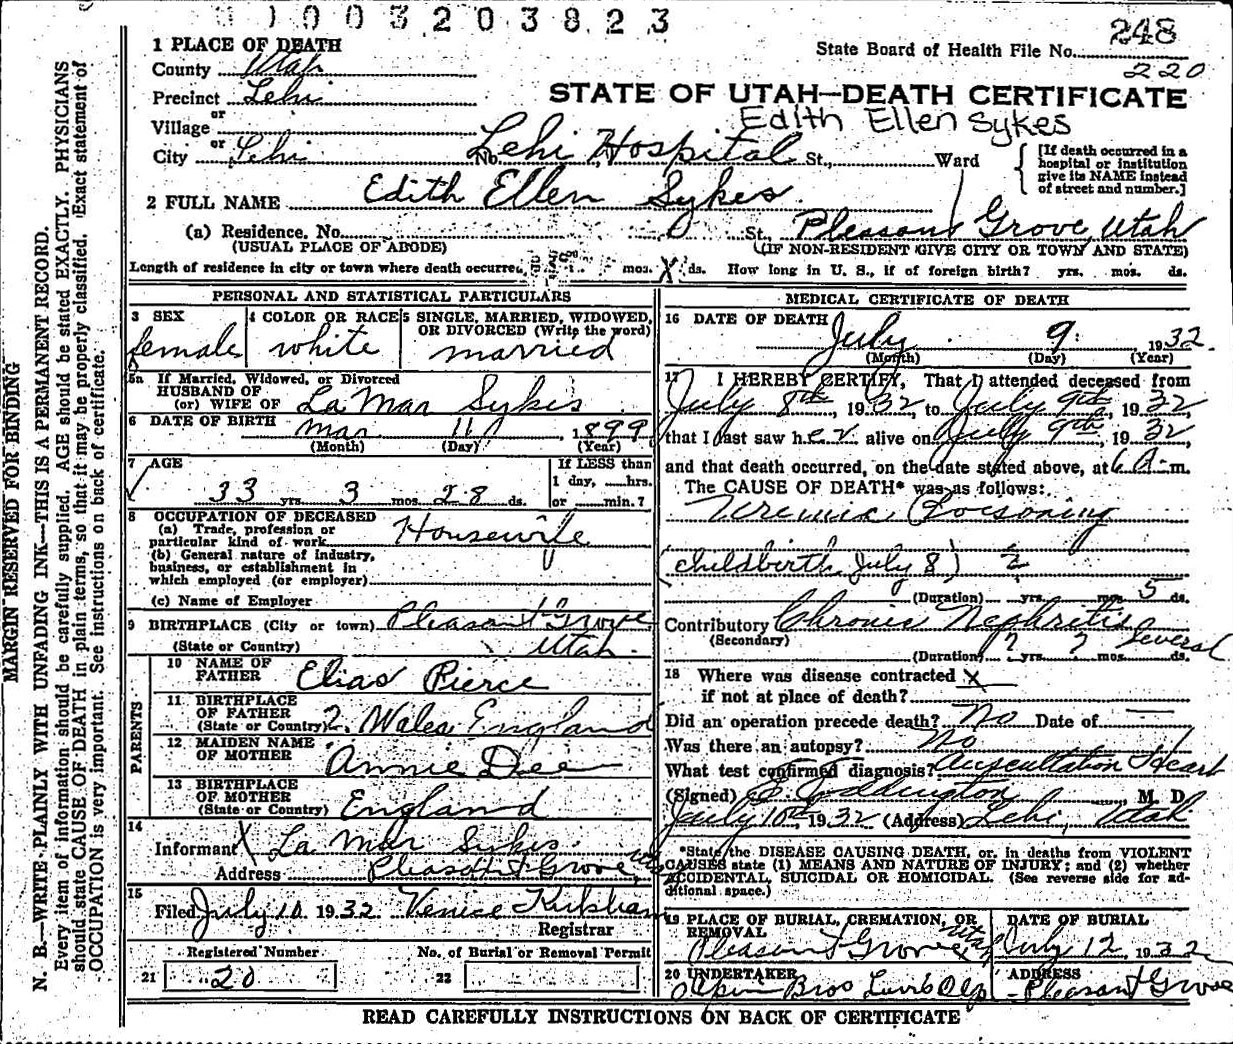 1003203823
1 PLACE OF DEATH
State Board of Health File No. 248
220
County Utah
Precinct Lehi
or
Village
or
City Lehi No. Lehi Hospital St., Ward
STATE OF UTAH—DEATH CERTIFICATE
Edith Ellen Sykes
[If death occurred in a
hospital or institution
give its NAME instead
of street and number.]
2 FULL NAME Edith Ellen Sykes
(a) Residence. No. St., Pleasant Grove, Utah
(USUAL PLACE OF ABODE) (IF NON-RESIDENT GIVE CITY OR TOWN AND STATE)
Length of residence in city or town where death occurred mos. X ds. How long in U. S., if of foreign birth? yrs. mos. ds.
PERSONAL AND STATISTICAL PARTICULARS
3 SEX
female
4 COLOR OR RACE
white
5 SINGLE, MARRIED, WIDOWED,
OR DIVORCED (Write the word)
married
5a If Married, Widowed, or Divorced
HUSBAND OF
(or) WIFE OF La Mar Sykes
6 DATE OF BIRTH Mar 11, 1899
(Month) (Day) (Year)
7 AGE
33 yrs. 3 mos. 28 ds.
If LESS than
1 day, ......hrs.
or ......min.?
8 OCCUPATION OF DECEASED
(a) Trade, profession or
particular kind of work Housewife
(b) General nature of industry,
business, or establishment in
which employed (or employer)
(c) Name of Employer
9 BIRTHPLACE (City or town) Pleasant Grove
(State or Country) Utah.
PARENTS
10 NAME OF
FATHER Elias Pierce
11 BIRTHPLACE
OF FATHER
(State or Country) Wales England
12 MAIDEN NAME
OF MOTHER Annie Dee
13 BIRTHPLACE
OF MOTHER
(State or Country) England
14
Informant X La Mar Sykes
Address Pleasant Grove,
15
Filed July 10 1932 Venice Kirkham
Registrar
Registered Number No. of Burial or Removal Permit
21 20 22
MEDICAL CERTIFICATE OF DEATH
16 DATE OF DEATH July 9 1932.
(Month) (Day) (Year)
17 I HEREBY CERTIFY, That I attended deceased from
July 8th, 1932, to July 9th, 1932,
that I last saw her alive on July 9th, 1932,
and that death occurred, on the date stated above, at 6 A. m.
The CAUSE OF DEATH* was as follows:
Uremic Poisoning
(childbirth July 8) ?
(Duration) yrs. mos. 5 ds.
Contributory Chronic Nephritis
(Secondary)
(Duration) ? yrs. ? mos. Several ds.
18 Where was disease contracted X
if not at place of death?
Did an operation precede death? No Date of —
Was there an autopsy? No
What test confirmed diagnosis? Auscultation Heart
(Signed) E. Eddington, M D
July 10th, 1932 (Address) Lehi, Utah
*State the DISEASE CAUSING DEATH, or, in deaths from VIOLENT
CAUSES state (1) MEANS AND NATURE OF INJURY; and (2) whether
ACCIDENTAL, SUICIDAL OR HOMICIDAL. (See reverse side for ad-
ditional space.)
19 PLACE OF BURIAL, CREMATION, OR
REMOVAL
Pleasant Grove Utah
DATE OF BURIAL
July 12, 1932
20 UNDERTAKER
Bros
ADDRESS
Pleasant Grove
READ CAREFULLY INSTRUCTIONS ON BACK OF CERTIFICATE
MARGIN RESERVED FOR BINDING
N. B.—WRITE PLAINLY WITH UNFADING INK—THIS IS A PERMANENT RECORD.
Every item of information should be carefully supplied. AGE should be stated EXACTLY. PHYSICIANS
should state CAUSE OF DEATH in plain terms, so that it may be properly classified. Exact statement of
OCCUPATION is very important. See instructions on back of certificate.